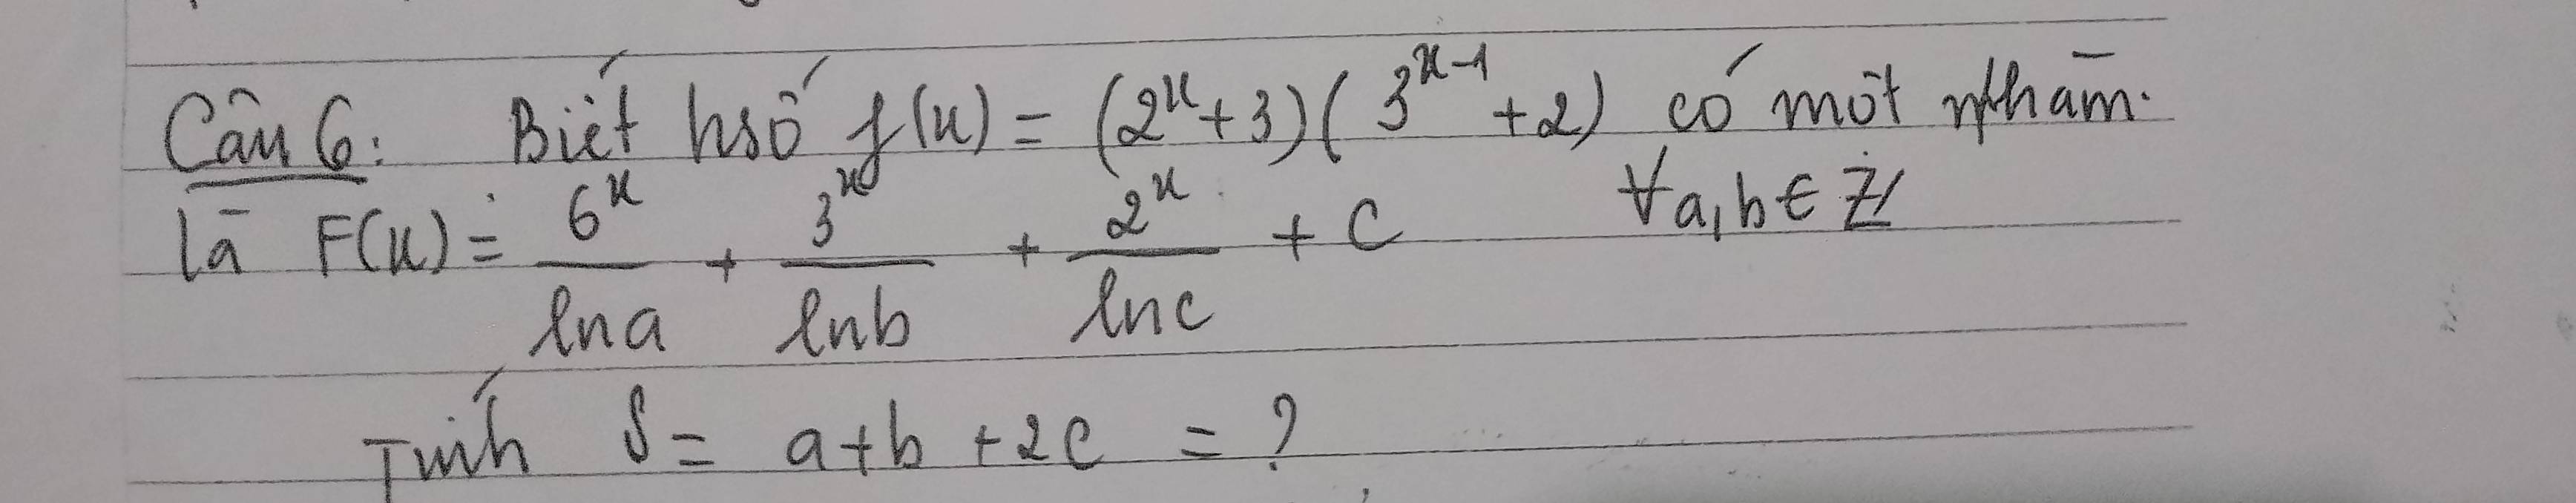 Câu 6: Biết hsố f(x) = (2^x + 3)(3^{x-1} + 2) có một nhàm.
là F(x) = \frac{6^x}{ln a} + \frac{3^x}{ln b} + \frac{2^x}{ln c} + C ∀a,b ∈ Z
Tính S = a + b + 2c = ?